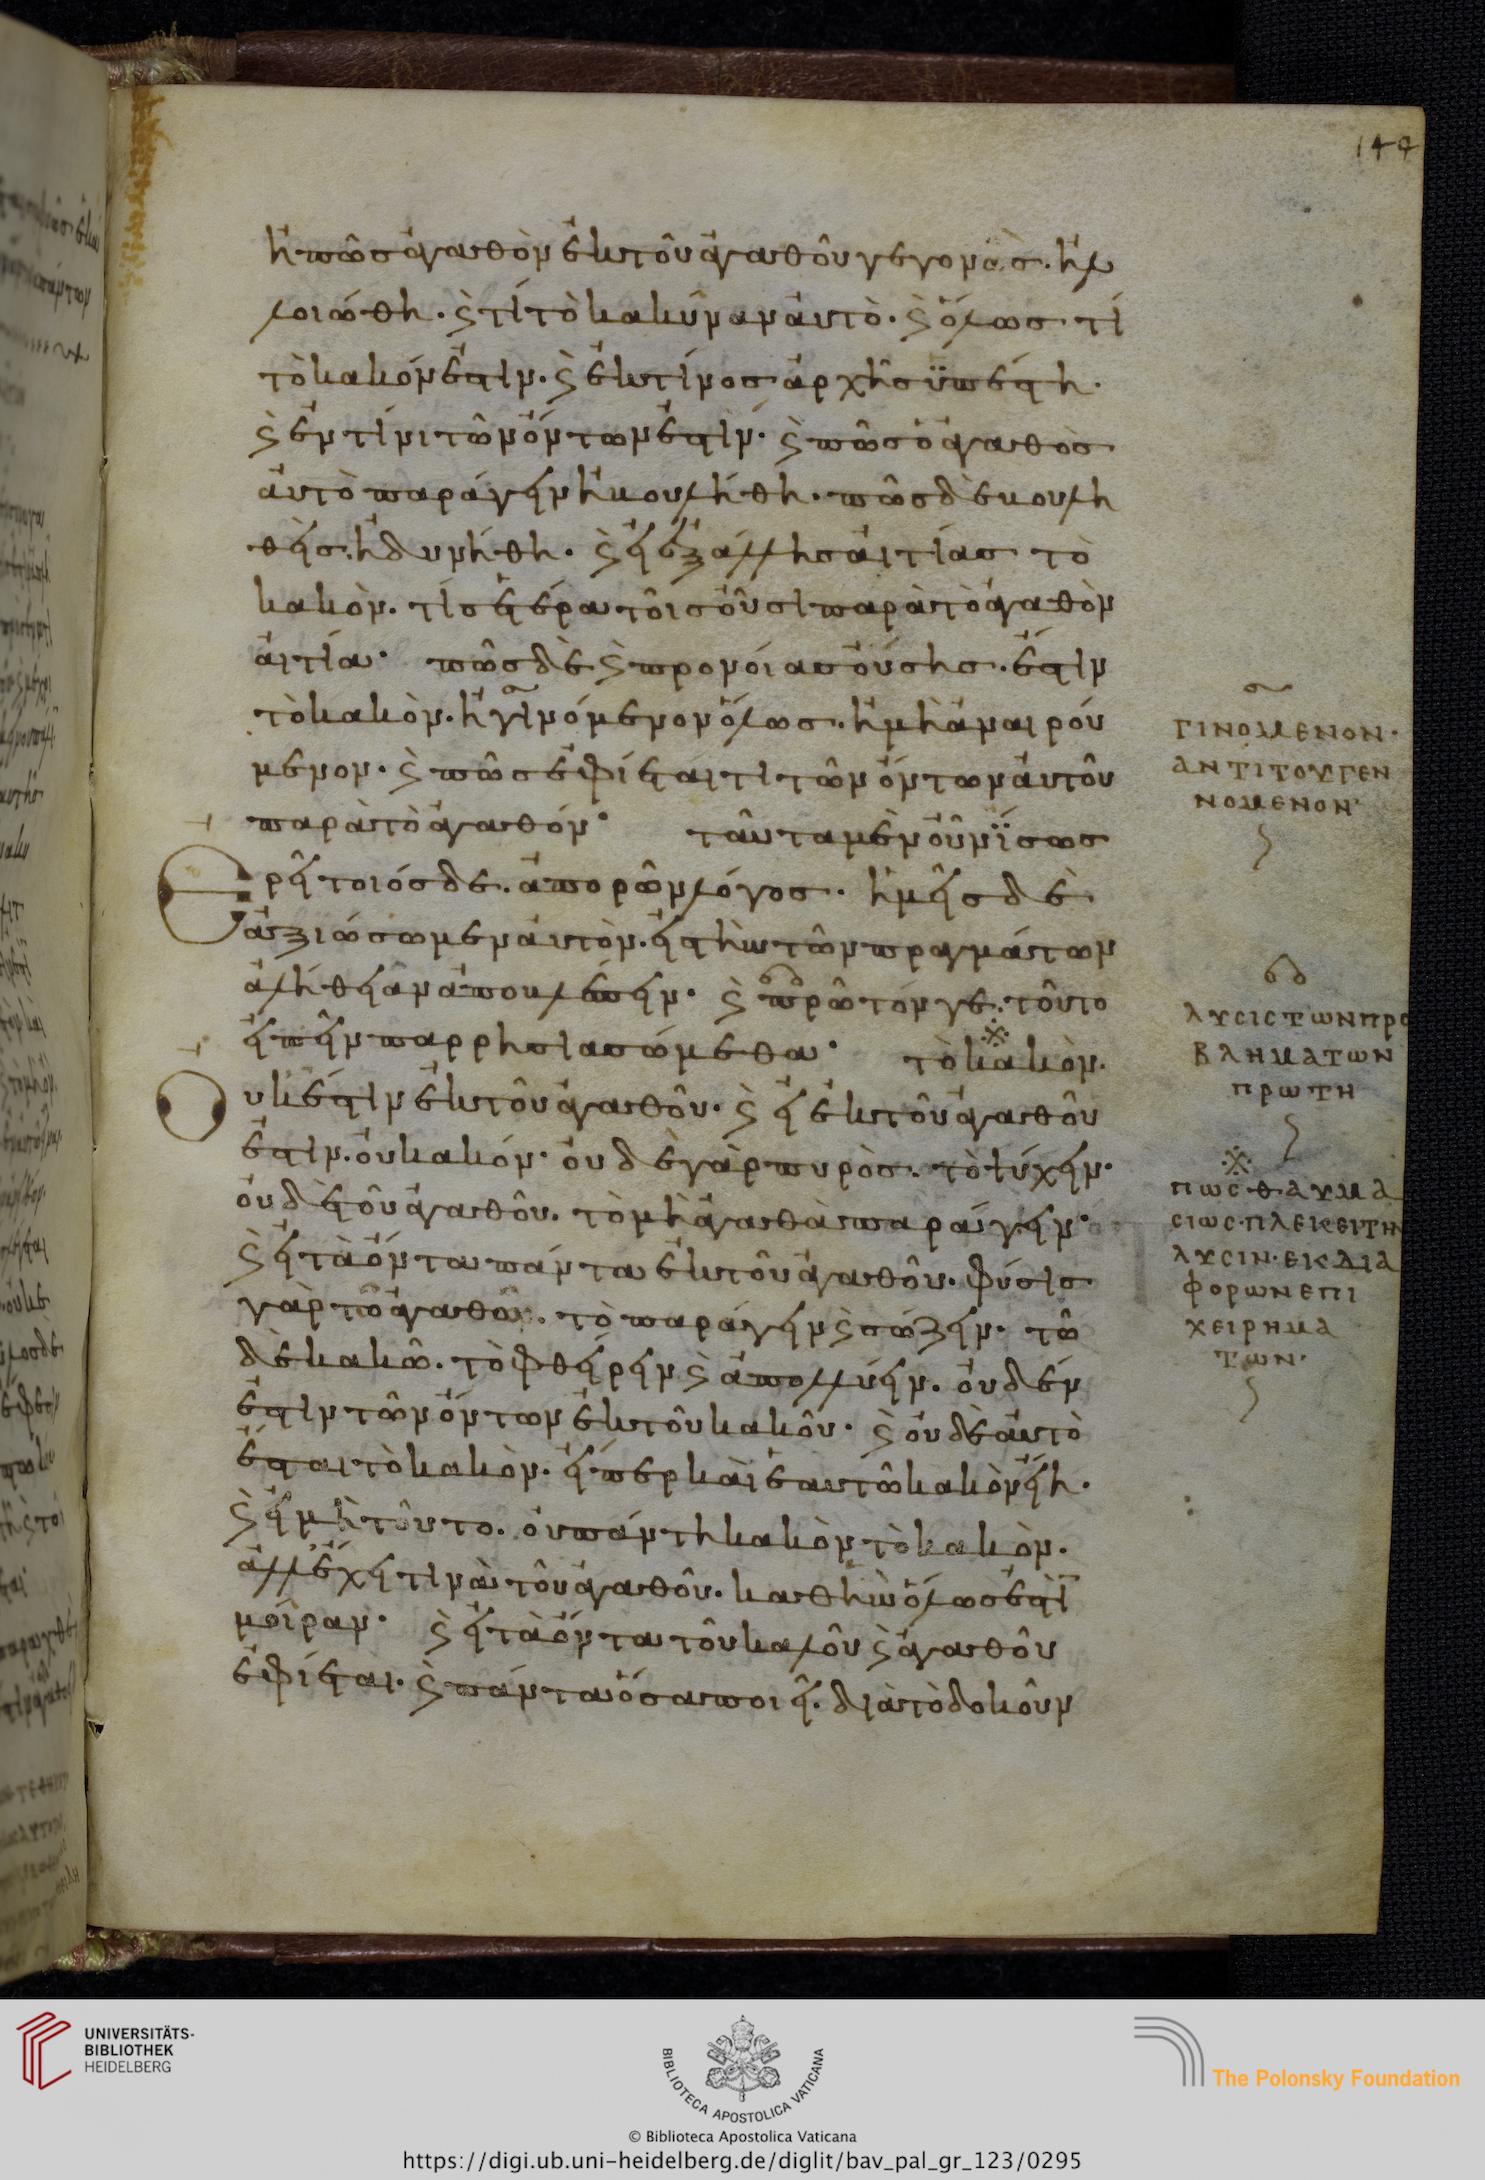 144
ἢ πῶς ἀγαθὸν ἐκ τοῦ ἀγαθοῦ γεγονὸς. ἠλ
λοιώθη. ϗ τί τὸ κακῦναν ἀυτὸ. ϗ ὅλως τί
τὸ κακόν ἐστιν. ϗ ἐκ τίνος ἀρχῆς ϋπέστη.
ϗ ἐν τίνι τῶν ὄντων ἐστίν. ϗ πῶς ὁ ἀγαθὸς
ἀυτὸ παράγειν ἠβουλήθη. πῶς δὲ βουλη
θεὶς. ἠδυνήθη. ϗ εἰ ἐξ ἄλλης ἀιτίας τὸ
κακὸν. τίς ἑτέρα τοῖς οὖσι παρὰ τὸ ἀγαθὸν
ἀιτία· πῶς δὲ ϗ προνοίας οὔσης. ἔστιν
τὸ κακὸν. ἢ γινόμενον ὅλως. ἢ μὴ ἀναιρού
μενον. ϗ πῶς ἐφίεταί τι τῶν ὄντων ἀυτοῦ
παρὰ τὸ ἀγαθόν· ταῦτα μὲν οὖν ϊσως
Ερεῖ τοιόσδε. ἀπορῶν λόγος. ἡμεῖς δὲ
ἀξιώσωμεν ἀυτὸν. εἰς τὴν τῶν πραγμάτων
ἀλήθειαν ἀποβλέπειν· ϗ πρῶτόν γε. τοῦτο
εἰπεῖν παρρησιασώμεθα· τὸ κακὸν.
Ουκ ἔστιν ἐκ τοῦ ἀγαθοῦ. ϗ εἰ ἐκ τοῦ ἀγαθοῦ
ἐστιν. οὐ κακόν· οὐδὲ γὰρ πυρὸς. τὸ ψύχειν.
οὐδὲ τοῦ ἀγαθοῦ. τὸ μὴ ἀγαθὰ παράγειν·
ϗ εἰ τὰ ὄντα πάντα ἐκ τοῦ ἀγαθοῦ. φύσις
γὰρ τῶ ἀγαθῶ. τὸ παράγειν ϗ σώζειν. τῶ
δὲ κακῶ. τὸ φθείρειν ϗ ἀπολλύειν. οὐδέν
ἐστιν τῶν ὄντων ἐκ τοῦ κακοῦ. ϗ οὐδὲ ἀυτὸ
ἔσται τὸ κακὸν. εἴπερ καὶ ἑαυτῶ κακὸν εἴη.
ϗ εἰ μὴ τοῦτο. οὐ πάντη κακὸν τὸ κακὸν.
ἀλλ' ἔχει τινὰ τοῦ ἀγαθοῦ. καθ' ἣν ὅλως ἐστὶ
μοῖραν· ϗ εἰ τὰ ὄντα τοῦ καλοῦ ϗ ἀγαθοῦ
ἐφίεται. ϗ πάντα ὅσα ποιεῖ. διὰ τὸ δοκοῦν
ΓΙΝΟΜΕΝΟΝ·
ΑΝΤΙ ΤΟΥ ΓΕΝ
ΝΟΜΕΝΟΝ·
ΛΥCΙC ΤΩΝ ΠΡΟ
ΒΛΗΜΑΤΩΝ
ΠΡΩΤΗ
ΠΩC ΘΑΥΜΑ
CΙΩC ΠΛΕΚΕΙ ΤΗΝ
ΛΥCΙΝ· ΕΚ ΔΙΑ
ΦΟΡΩΝ ΕΠΙ
ΧΕΙΡΗΜΑ
ΤΩΝ·
UNIVERSITÄTS-
BIBLIOTHEK
HEIDELBERG
BIBLIOTECA APOSTOLICA VATICANA
© Biblioteca Apostolica Vaticana
The Polonsky Foundation
https://digi.ub.uni-heidelberg.de/diglit/bav_pal_gr_123/0295